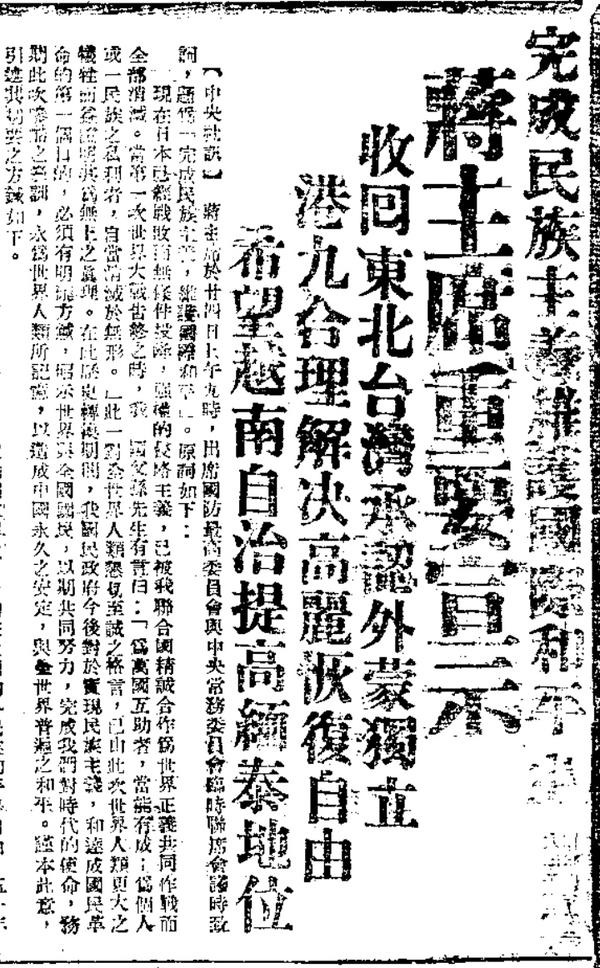 完成民族主義維護國際和平
蔣主席重要宣示
收回東北台灣承認外蒙獨立
港九合理解決高麗恢復自由
希望越南自治提高緬泰地位
【中央社訊】蔣主席於廿四日上午九時，出席國防最高委員會與中央常務委員會臨時聯席會議時致
詞，題為「完成民族主義，維護國際和平」。原詞如下：
現在日本已經戰敗而無條件投降，強權的侵略主義，已被我聯合國精誠合作為世界正義共同作戰而
全部消滅。當第一次世界大戰告終之時，我 國父孫先生有言曰：「為萬國互助者，當能有成；為個人
或一民族之私利者，自當消滅於無形。」此一對全世界人類懇切至誠之格言，已由此次世界人類更大之
犧牲而益證明其為無上之真理。在此歷史轉捩期間，我國民政府今後對於實現民族主義，和達成國民革
命的第一個目的，必須有明確方鍼，昭示世界與全國國民，以期共同努力，完成我們對時代的使命，務
期此次慘痛之等訓，永為世界人類所記憶，以造成中國永久之安定，與全世界普遍之和平。謹本此意，
引述其切要之方鍼如下。